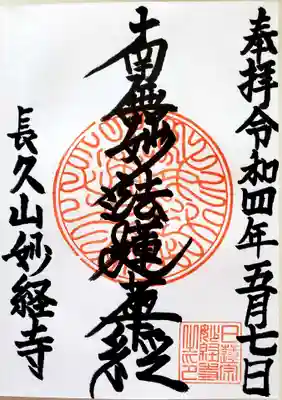 奉拝令和四年五月七日
南無妙法蓮華経
長久山妙経寺